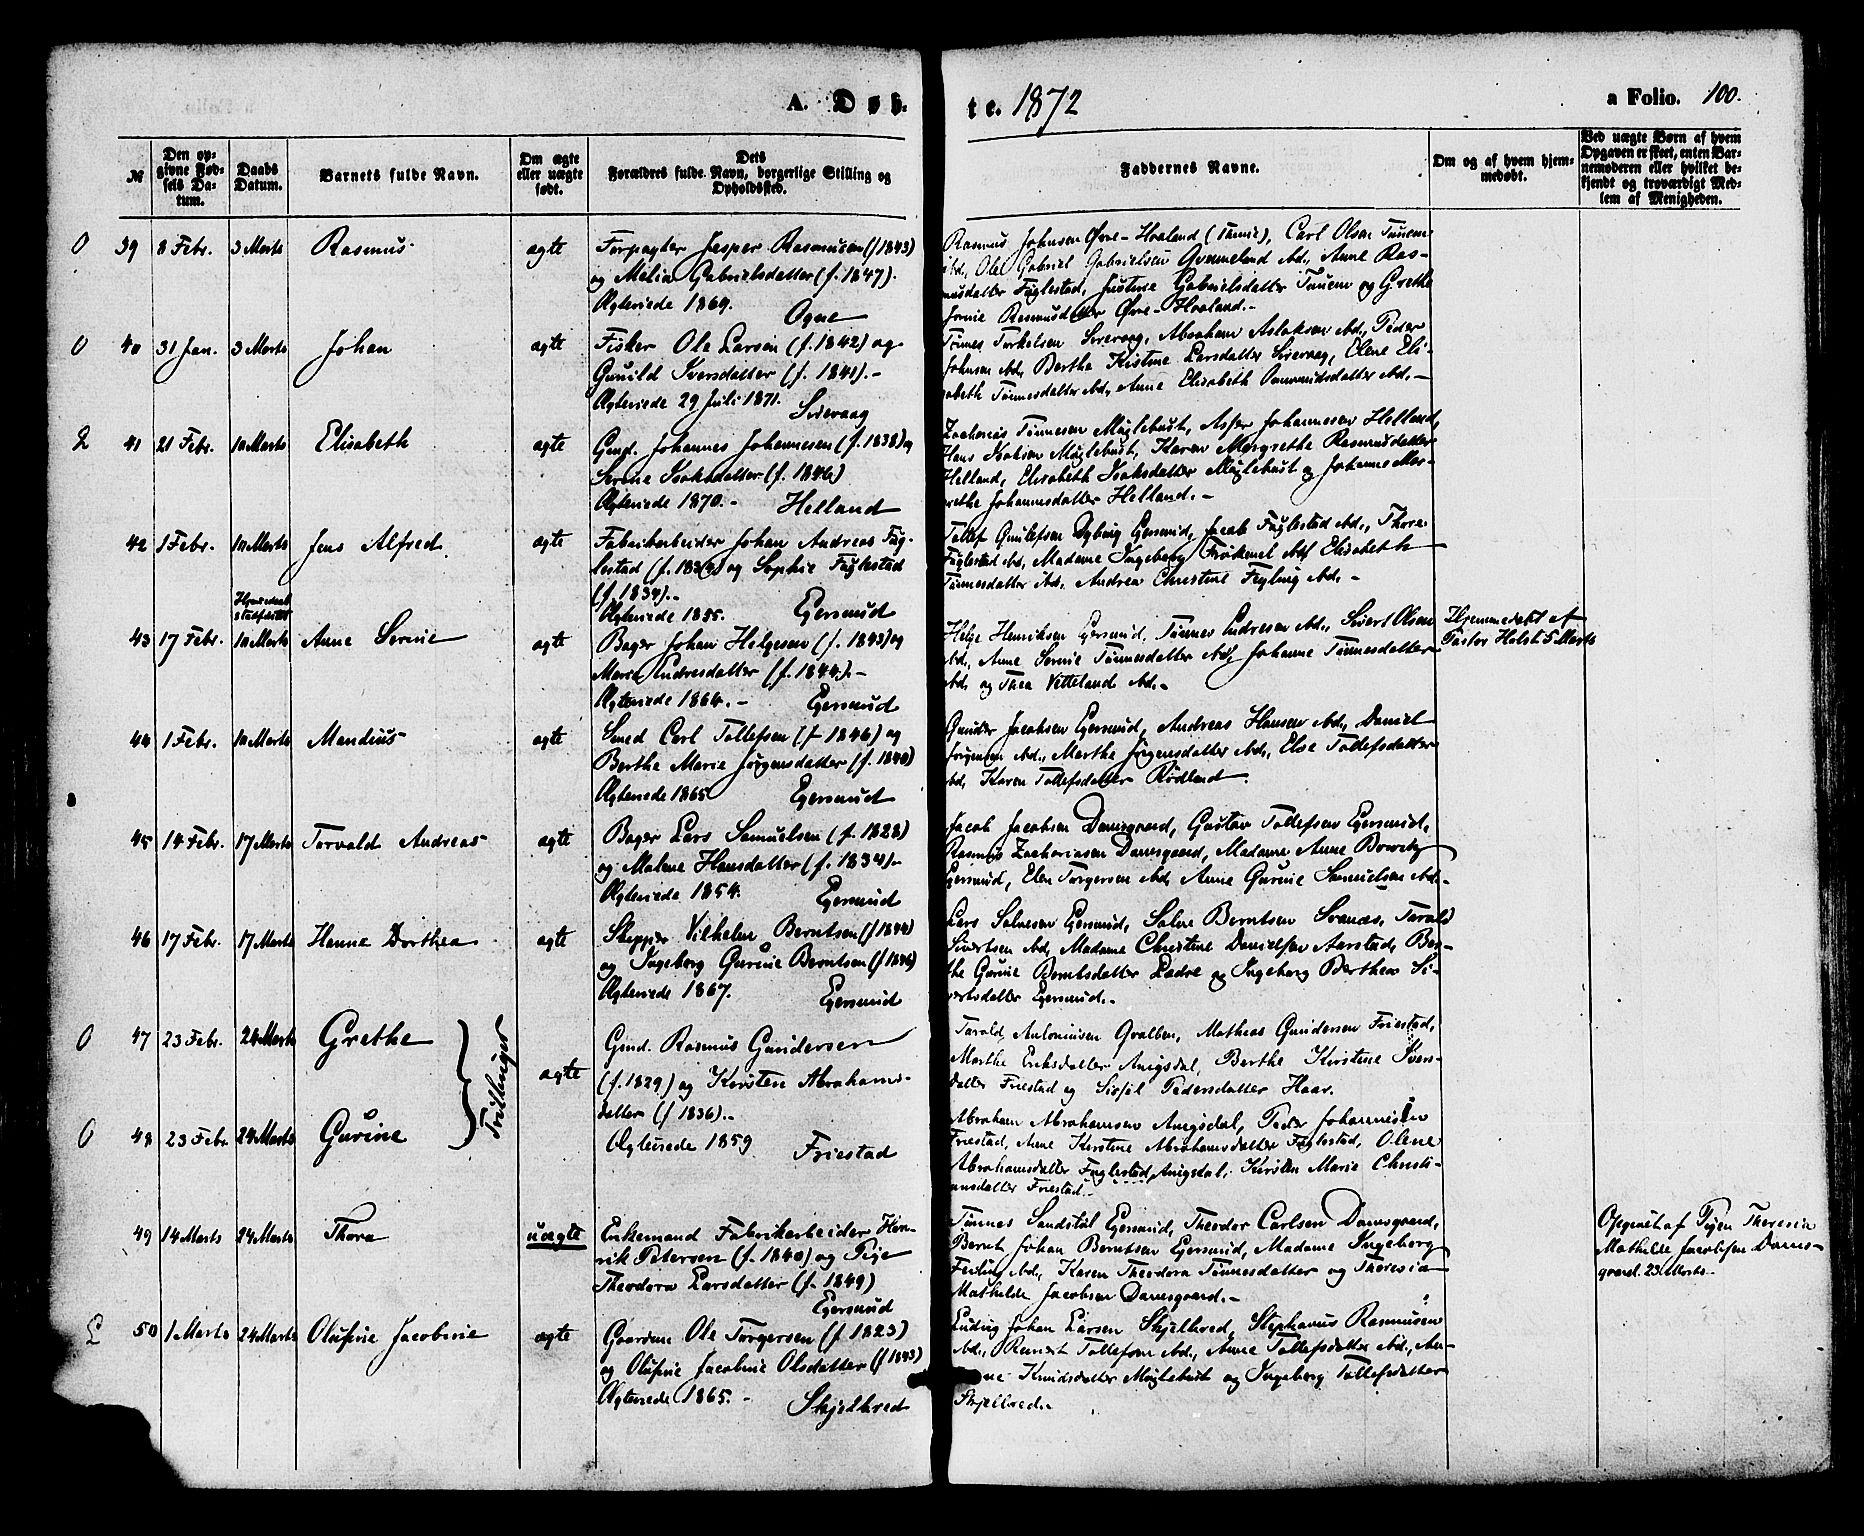 A. Døb-
te. 1872
a Folio. 100.
№
Den op-
givne Fød-
sels Da-
tum.
Daabs
Datum.
Barnets fulde Navn.
Om ægte
eller uægte
født.
Dets
Forældres fulde Navn, borgerlige Stilling og
Opholdssted.
Faddernes Navne.
Om og af hvem hjem-
medøbt.
Ved uægte Børn af hvem
Opgaven er skeet, enten Bar-
nemoderen eller hvilket be-
kjendt og troværdigt Med-
lem af Menigheden.
0 39 8 Febr. 3 Marts Rasmus ægte
Forpagter Jesper Rasmusen (f 1843)
og Malia Gabrielsdatter (f. 1847).
Ægteviede 1869. Ogne
Rasmus Johnsen Øvre-Hoaland (), Carl Olsen Tuuem
ibd, Ole Gabriel Gabrielsen ibd., Anne Ras-
musdatter Fuglestad, Justine Gabrielsdatter Tuuem og Grethe
Rasmusdatter Øvre-Hoaland.-
0 40 31 Jan. 3 Marts Johan ægte
Fisker Ole Larsen (f. 1842) og
Gunild Iversdatter (f. 1841).-
Ægteviede 29 Juli 1871. Sirevaag
Tønnes Torkelsen Sirevaag, Abraham Aslaksen ibd., Peder
Johnsen ibd, Berthe Kistine Larsdatter Sirevaag, Elene Eli-
sabeth Tønnesdatter ibd, Anne Elisabeth Ommundsdatter ibd.-
2 41 21 Febr. 10 Marts Elisabeth ægte
Gmd. Johannes Johannesen (f. 1838) og
Serine Isaksdatter (f. 1846)
Ægteviede 1870.- Helland
Zacharias Tønnesen Møglebust, Asser Johannesen Helland,
Hans Isaksen Møglebust, Karen Margrethe Rasmusdatter
Helland, Elisabeth Isaksdatter Møglebust og Johanne Mar-
grethe Johannesdatter Helland.-
42 1 Febr. 10 Marts Jens Alfred ægte
Fabrikarbeider Johan Andreas Fug-
lestad (f. ) og Sophie Fuglestad
(f. 1834).-
Ægteviede 1855. Egersund
Tollef Gunlefsen Dyburg Egersund, Jacob Fuglestad ibd., Thora
Fuglestad ibd, Madame Ingeborg ibd Elisabeth
Tønnesdatter ibd., Andrea Christine Feyling ibd.-
Hjemmedaab
stadfæstet
43 17 Febr. 10 Marts Anne Serine ægte
Bager Johan Helgesen (f. 1843) og
Marie Endresdatter (f. 1844).-
Ægteviede 1864.- Egersund
Helge Henriksen Egersund, Tønnes Endresen ibd., Sivert Olsen
ibd., Anne Serine Tønnesdatter ibd, Johanne Tønnesdatter
ibd. og Thea Vetteland ibd.-
Hjemmedøbt af
Pastor Holst 5 Marts
44 1 Febr. 10 Marts Mandius ægte
Smed Carl Tollefsen (f 1846) og
Berthe Marie Jørgensdatter (f. 1840)
Ægteviede 1865 Egersund
Gunder Jacobsen Egersund, Andreas Hansen ibd., Daniel
Jørgensen ibd., Marthe Jørgensdatter ibd., Else Tollefsdatter
ibd, Karen Tollefsdatter Rødland.
45 14 Febr. 17 Marts Torvald Andreas ægte
Bager Lars Samuelsen (f. 1828)
og Malene Hansdatter (f. 1834).
Ægteviede 1854. Egersund
Jacob Jacobsen Damsgaard, Gustav Tollefsen Egersund,
Rasmus Zachariasen Damsgaard, Madame Anne
Egersund, Elen Torgersen ibd, Anne Gurine Samuelsen ibd.-
46 17 Febr. 17 Marts Hanne Dorthea ægte
Skipper Vilhelm Berntsen (f 1844)
og Ingeborg Gurine Berntsen (f 1846)
Ægteviede 1867. Egersund
Lars Salvesen Egersund, Salve Berntsen Svanæs, Torvald
Sivertsen ibd, Madame Christine Danielsen Aarstad, Ber-
the Gurine Berntsdatter Ladre og Ingeborg Berthea Si-
vertsdatter Egersund.-
0 47 23 Febr. 24 Marts Grethe
Tvillinger
ægte
Gmd. Rasmus Gundersen
(f. 1829) og Kirsten Abrahams-
datter (f 1836).-
Ægteviede 1859 Friestad
Torvald Antonisen Qvalben, Mathias Gundersen Friestad,
Marthe Eriksdatter Anigsdal, Berthe Kirstine Ivers-
datter Friestad og Sissel Pedersdatter Haar.
0 48 23 Febr 24 Marts Gurine
Abraham Abrahamsen Anigsdal, Peder Johannesen
Friestad, Anne Kirstine Abrahamsdatter Fuglestad, Olene
Abrahamsdatter Fuglestad, Anigsdal, Kirsten Marie Christi-
ansdatter Friestad.-
49 14 Marts 24 Marts Thora uægte
Enkemand Fabrikarbeider Hen-
rik Petersen (f. 1840) og Pige
Theodora Larsdatter (f. 1849)
Egersund
Tønnes Sandstøl Egersund, Theodor Carlsen Damsgaard,
Bernt Johan Berntsen Egersund, Madame Ingeborg
ibd., Karen Theodora Tønnesdatter og Theresia
Mathilde Jacobsen Damsgaard.-
Opgivet af Pigen Theresia
Mathilde Jacobsen Dams-
gaard. 23 Marts.
L 50 1 Marts 24 Marts Olufine Jacobine ægte
Gaardm Ole Torgersen (f 1823)
og Olufine Jacobine Olsdatter (f 1843)
Ægteviede 1865.- Skjelbred
Ludvig Johan Larsen Skjelbred, Stephanus Rasmusen
ibd., Tollefsen ibd., Anne Tollefsdatter ibd., An-
Knudsdatter Møglebust og Ingeborg Tollefsdatter
Skjelbred.-